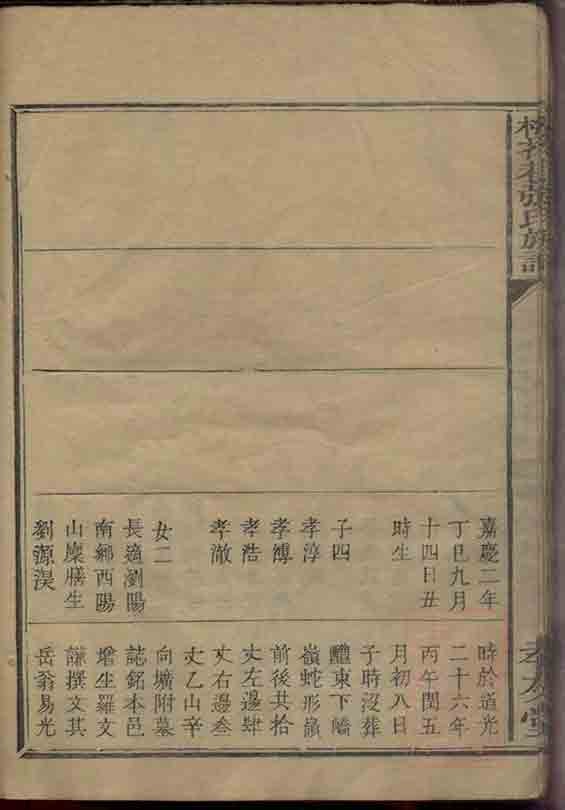 張氏族譜
嘉慶二年
丁巳九月
十四日丑
時生
子四
孝淳
孝漙
孝浩
孝澈
女二
長適瀏陽
南鄉西陽
山廩膳生
劉源渼
時於道光
二十六年
丙午閏五
月初八日
子時沒葬
醴東下嶠
嶺蛇形嶺
前後共拾
丈左邊肆
丈右邊叁
丈乙山辛
向壙附墓
誌銘本邑
增生羅文
謙撰文其
岳翁易光